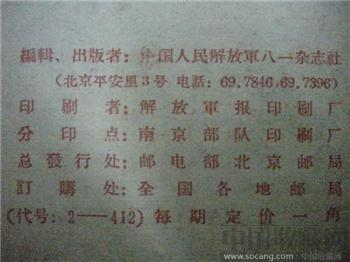 編輯、出版者：中国人民解放軍八一杂志社
(北京平安里3号 电話：69.7846,69.7396)
印刷者：解放軍报印刷厂
分印点：南京部队印刷厂
总發行处：邮电部北京邮局
訂購处：全国各地邮局
(代号：2——412) 每期定价一角
中国收藏网
www.socang.com 中国收藏网